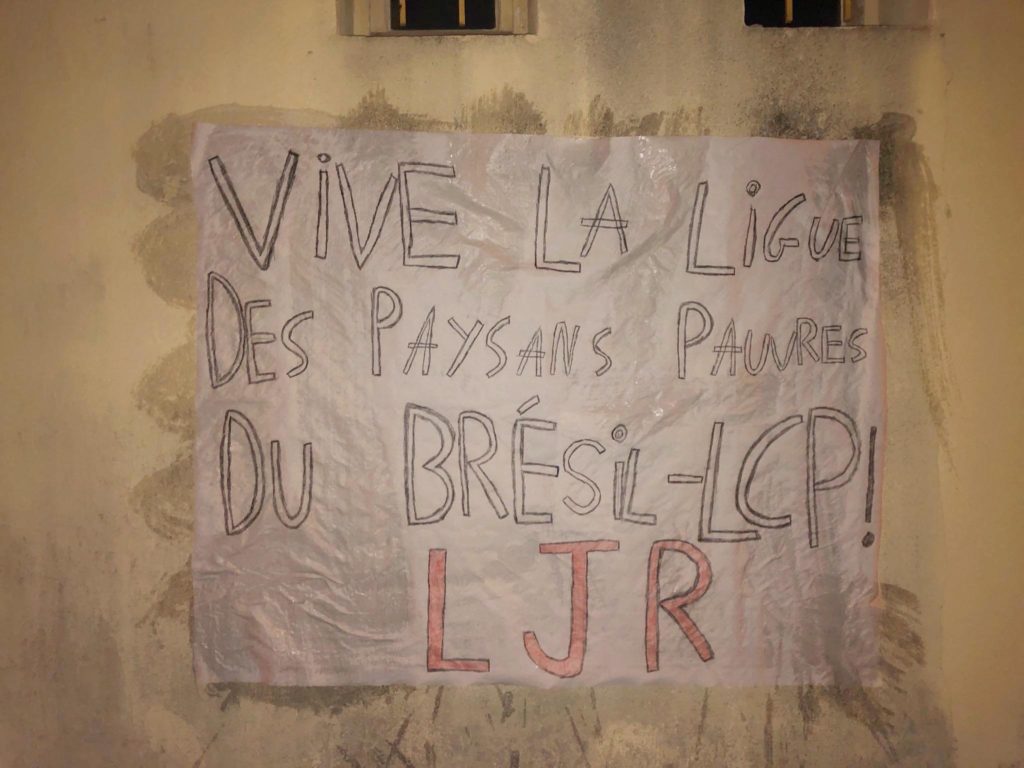 ViVE LA LiGUE
DES PAYSANS PAUVRES
DU BRÉSiL-LCP!
LJR